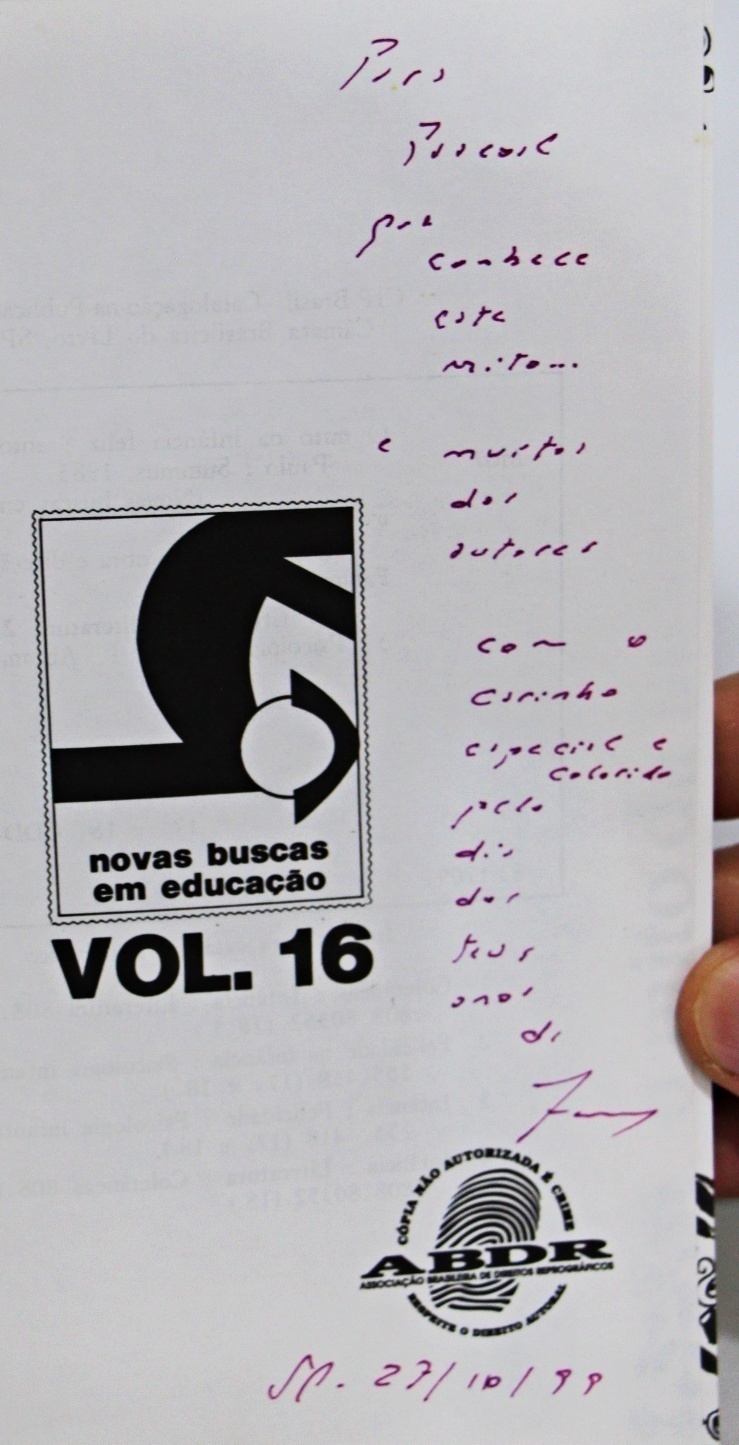 Para
Pascoal
pra
conhece
este
mito...
e muitos
dos
autores
com o
carinho
especial e
colorido
pelo
dia
dos
teus
anos
da
novas buscas
em educação
VOL. 16
CÓPIA NÃO AUTORIZADA É CRIME
ABDR
ASSOCIAÇÃO BRASILEIRA DE DIREITOS REPROGRÁFICOS
RESPEITE O DIREITO AUTORAL
SP. 27/10/99